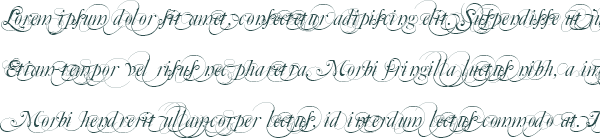 Lorem ipsum dolor sit amet, consectetur adipiscing elit. Suspendisse at
Etiam tempor vel risus nec pharetra. Morbi fringilla luctus nibh, a
Morbi hendrerit ullamcorper lectus, id interdum lectus commodo at.